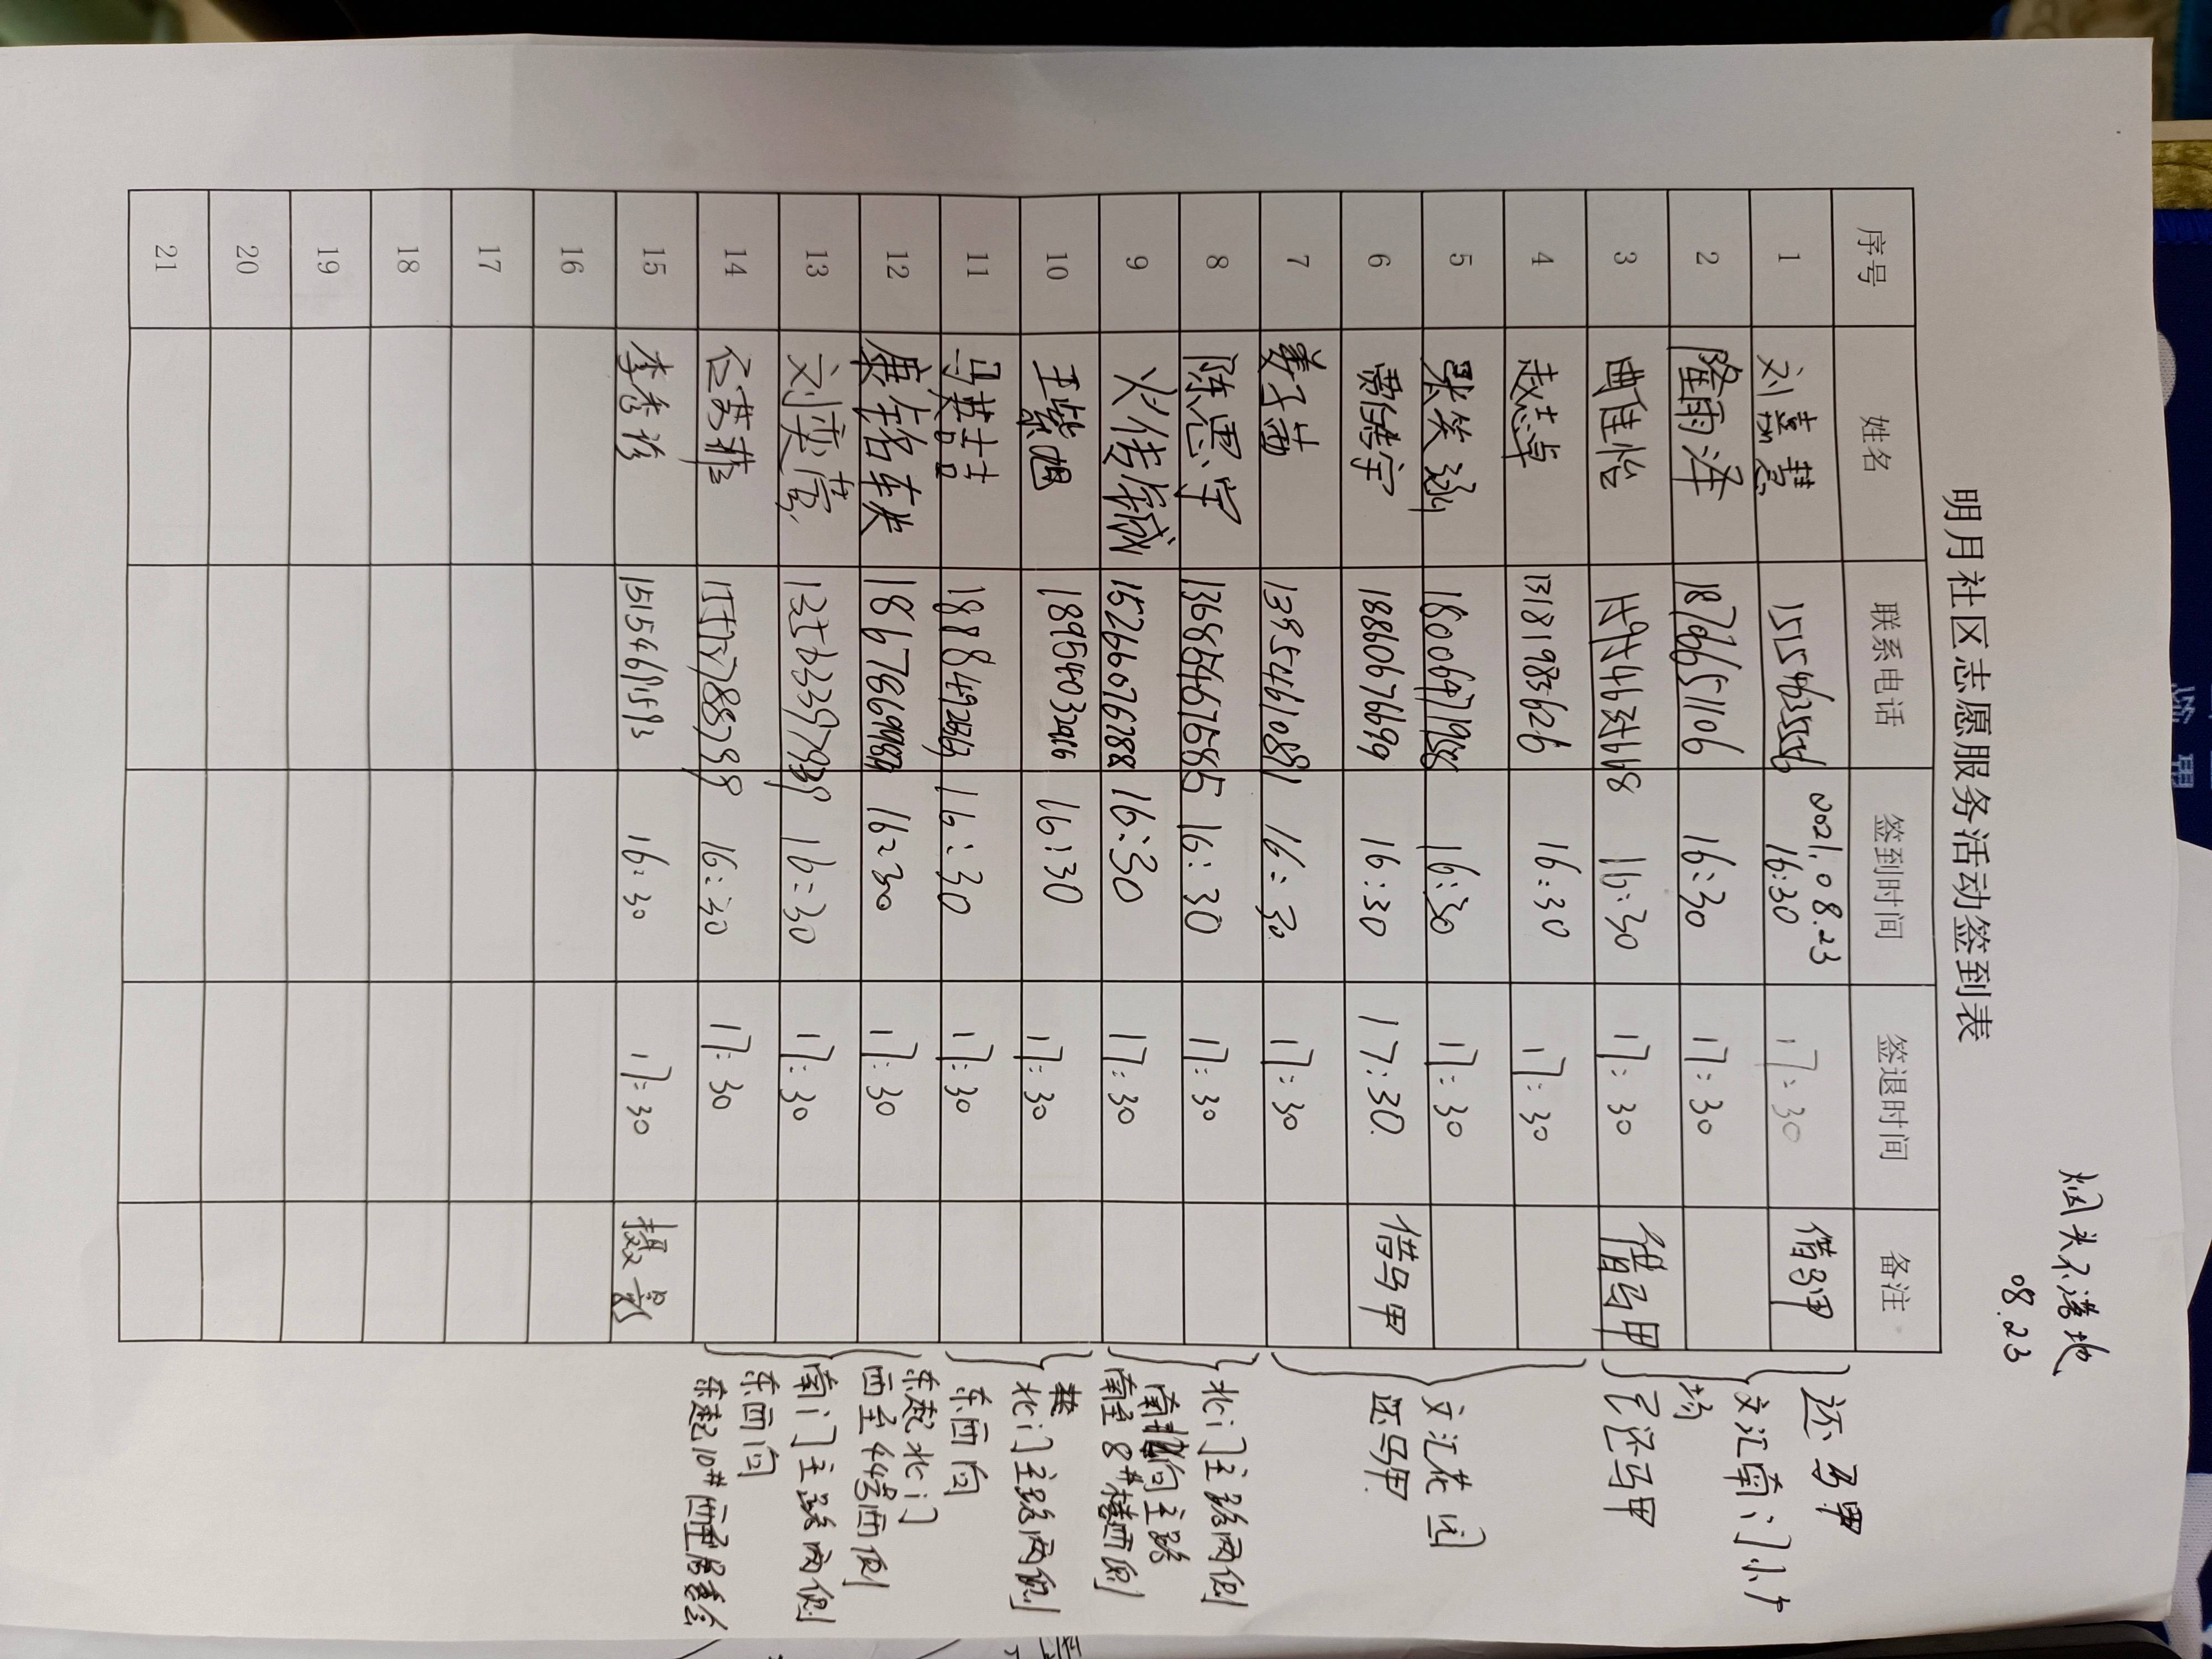 烟头不落地
08.23
明月社区志愿服务活动签到表
序号 姓名 联系电话 签到时间 签退时间 备注
1 刘嘉慧 2021.08.23 16:30 17:30 借马甲
2 隆雨泽 18766651106 16:30 17:30
3 曲佳怡 16:30 17:30 借马甲
4 赵志卓 13181983626 16:30 17:30
5 张笑涵 16:30 17:30
6 贾传宇 18860676699 16:30 17:30. 借马甲
7 姜子茜 13954610881 16:30. 17:30
8 陈思宇 16:30 17:30
9 15266076788 16:30 17:30
10 王紫旭 16:30 17:30
11 马英喆 16:30 17:30
12 16:30 17:30
13 刘奕萱 16:30 17:30
14 16:30 17:30
15 李秀珍 16:30 17:30 摄影
16
17
18
19
20
21
还马甲
文汇南门小广
场
已还马甲
文汇花园
还马甲
北门主路两侧
南北向主路
南至8#楼西侧
北门主路两侧
东西向
东起北门
西至44号西侧
南门主路两侧
东西向
东起10#西至居委会